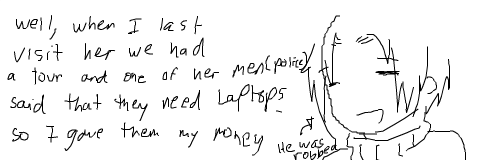 well, when I last
visit her we had
a tour and one of her men(police)
said that they need Laptops
so I gave them my money
He was
robbed